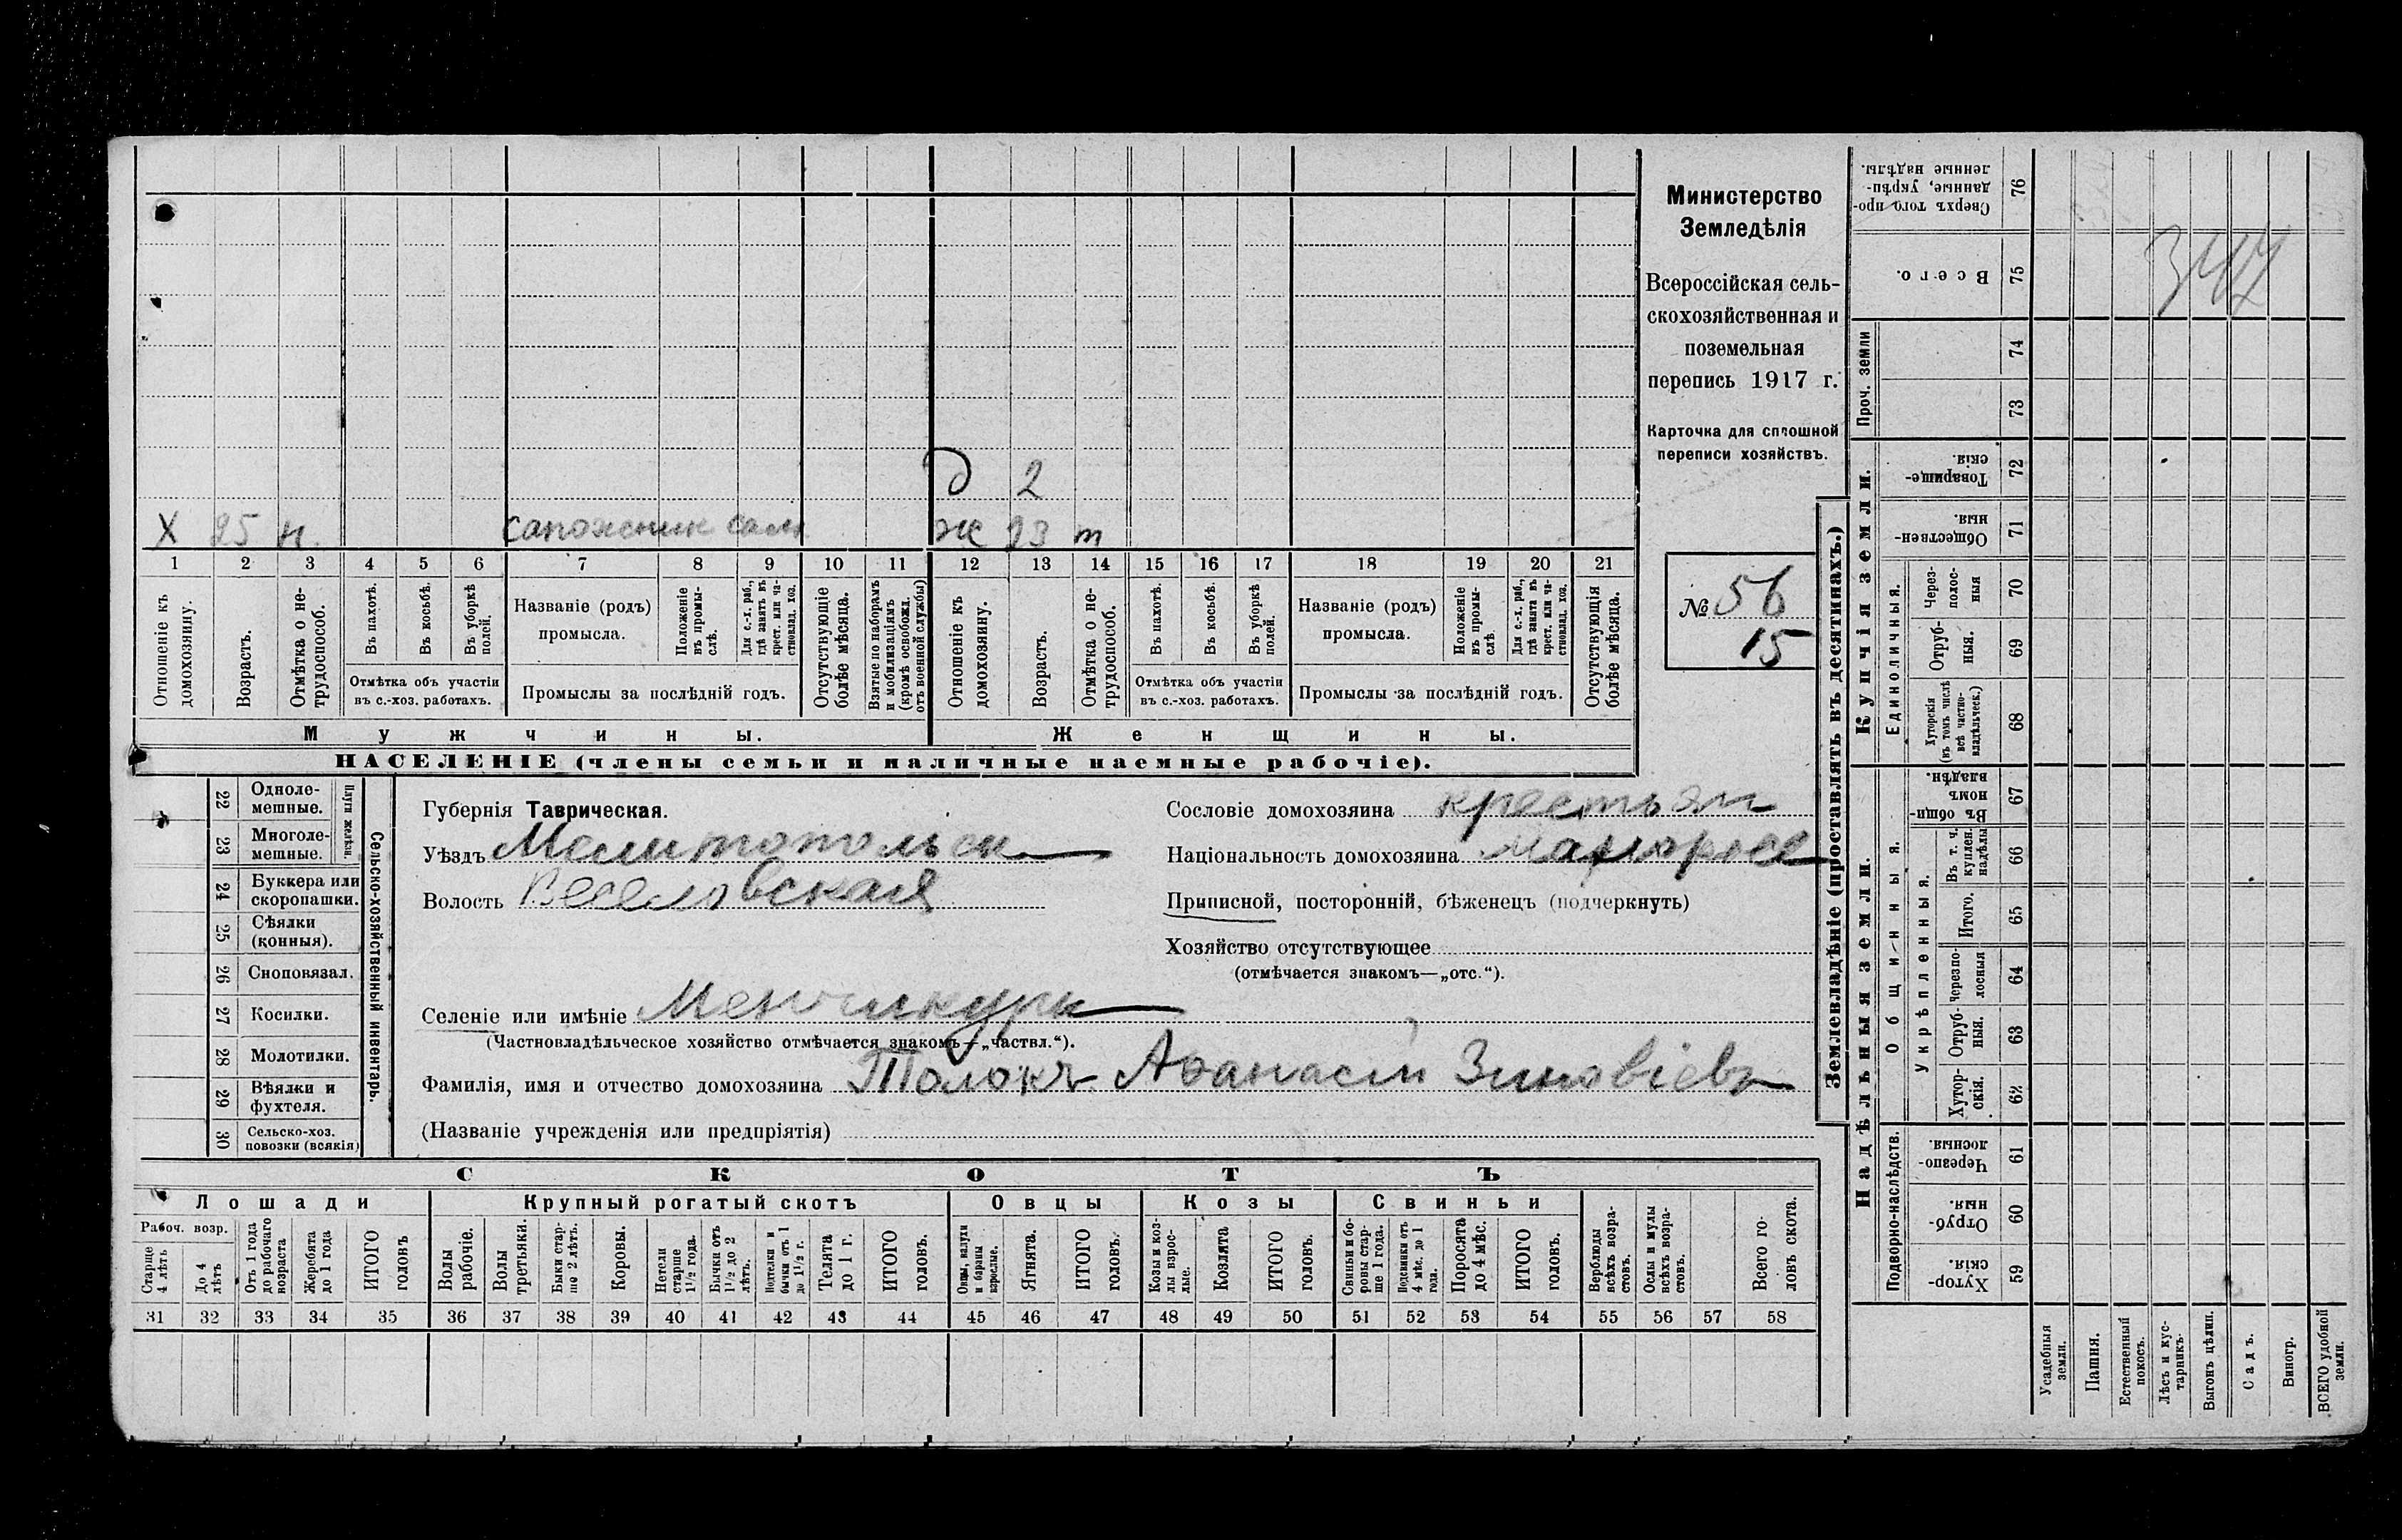 Министерство
Земледѣлія
Всероссійская сель-
скохозяйственная и
поземельная
перепись 1917 г.
Карточка для сплошной
переписи хозяйствъ.
№ 56
15
347
д 2
X 25 н. сапожник сам ж 23 т
1 2 3 4 5 6 7 8 9 10 11 12 13 14 15 16 17 18 19 20 21
Отношеніе къ домохозяину.
Возрастъ.
Отмѣтка о не-трудоспособ.
Въ пахотѣ.
Въ косьбѣ.
Въ уборкѣ полей.
Отмѣтка объ участіи
въ с.-хоз. работахъ.
Названіе (родъ)
промысла.
Положеніе въ промы-слѣ.
Для с.-х. раб., гдѣ занятъ въ крест. или ча-стновлад. хоз.
Промыслы за послѣдній годъ.
Отсутствующіе болѣе мѣсяца.
Взятые по наборамъ и мобилизаціямъ (кромѣ освобожд. отъ военной службы)
Отношеніе къ домохозяину.
Возрастъ.
Отмѣтка о не-трудоспособ.
Въ пахотѣ.
Въ косьбѣ.
Въ уборкѣ полей.
Отмѣтка объ участіи
въ с.-хоз. работахъ.
Названіе (родъ)
промысла.
Положеніе въ промы-слѣ.
Для с.-х. раб., гдѣ занята въ крест. или ча-стновлад. хоз.
Промыслы за послѣдній годъ.
Отсутствующія болѣе мѣсяца.
Мужчины.
Женщины.
НАСЕЛЕНІЕ (члены семьи и наличные наемные рабочіе).
22 Одноле-мешные.
23 Многоле-мешные.
Плуги желѣзн.
24 Буккера или скоропашки.
25 Сѣялки (конныя).
26 Сноповязал.
27 Косилки.
28 Молотилки.
29 Вѣялки и фухтеля.
30 Сельско-хоз. повозки (всякія)
Сельско-хозяйственный инвентарь.
Губернія Таврическая.
Уѣздъ Мелитопольск
Волость Веселовская
Сословіе домохозяина крестьян
Національность домохозяина малоросс
Приписной, посторонній, бѣженецъ (подчеркнуть)
Хозяйство отсутствующее
(отмѣчается знакомъ—„отс.“).
Селеніе или имѣніе Менчикуры
(Частновладѣльческое хозяйство отмѣчается знакомъ—„частвл.“).
Фамилія, имя и отчество домохозяина Толокъ Афанасій Зиновіевъ
(Названіе учрежденія или предпріятія)
СКОТЪ
Лошади
Крупный рогатый скотъ
Овцы
Козы
Свиньи
Рабоч. возр.
Старше 4 лѣтъ
До 4 лѣтъ
Отъ 1 года до рабочаго возраста
Жеребята до 1 года
ИТОГО головъ
Волы рабочіе.
Волы третьяки.
Быки стар-ше 2 лѣтъ.
Коровы.
Нетели старше 1½ года.
Бычки отъ 1½ до 2 лѣтъ.
Подтелки и бычки отъ 1 до 1½ г.
Телята до 1 г.
ИТОГО головъ.
Овцы, валухи и бараны взрослые.
Ягнята.
ИТОГО головъ.
Козы и коз-лы взрос-лые.
Козлята
ИТОГО головъ.
Свиньи и бо-ровы стар-ше 1 года.
Подсвинки отъ 4 мѣс. до 1 года.
Поросята до 4 мѣс.
ИТОГО головъ.
Верблюды всѣхъ возра-стовъ.
Ослы и мулы всѣхъ возра-стовъ.
Всего го-ловъ скота.
31 32 33 34 35 36 37 38 39 40 41 42 43 44 45 46 47 48 49 50 51 52 53 54 55 56 57 58
Землевладѣніе (проставлять въ десятинахъ.)
Надѣльныя земли.
Купчія земли.
Проч. земли
Подворно-наслѣдств.
Общинныя.
Укрѣпленныя.
Единоличныя.
Сверхъ того про-данные, укрѣп-ленные надѣлы. 76
Всего. 75
74
73
Товарище-скія. 72
Обществен-ныя. 71
Через-полос-ныя 70
Отруб-ныя. 69
Хуторскія (въ томъ числѣ всѣ частно-владѣльческ.) 68
Въ общин-номъ владѣн. 67
Въ т. ч. куплен. надѣлы 66
Итого. 65
Черезпо-лосныя 64
Отруб-ныя. 63
Хутор-скія. 62
Черезпо-лосныя. 61
Отруб-ныя. 60
Хутор-скія. 59
Усадебныя земли.
Пашня.
Естественный покосъ.
Лѣсъ и кус-тарникъ.
Выгонъ цѣлин.
Садъ.
Виногр.
ВСЕГО удобной земли.